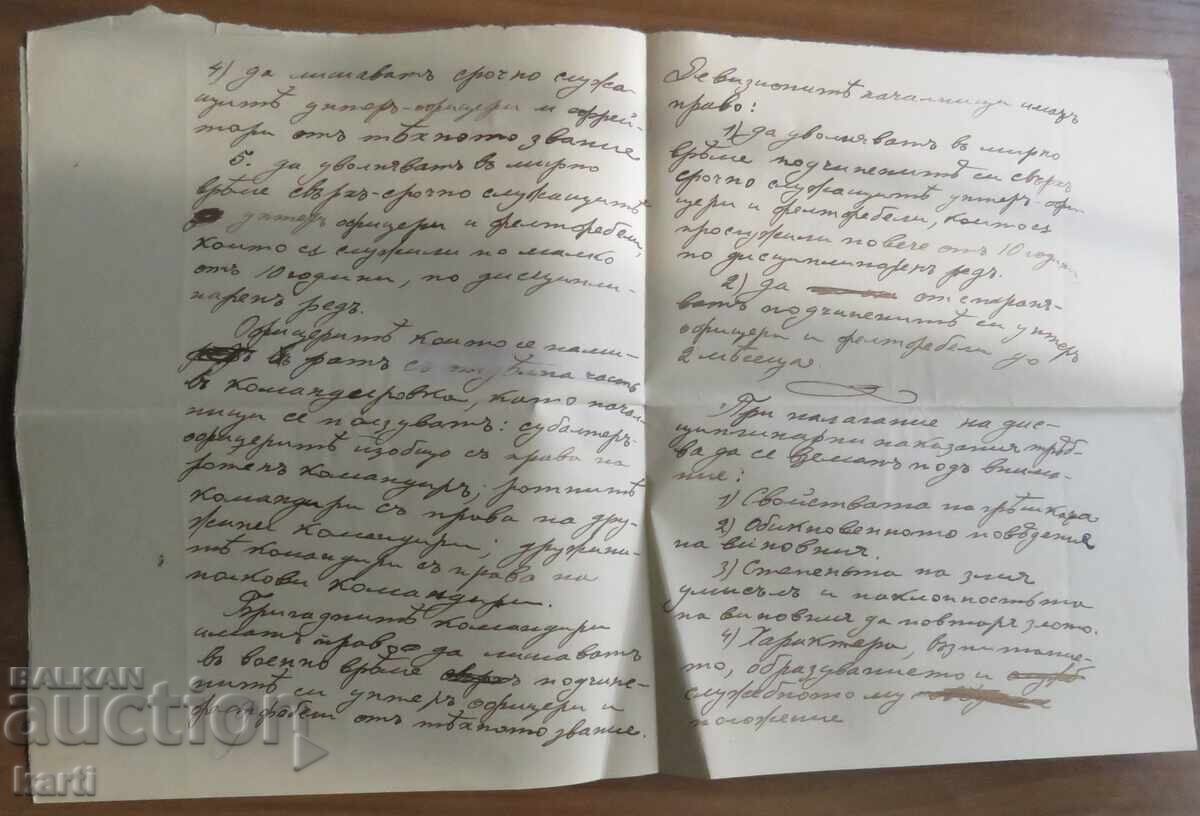 4) да лишаватъ срочно служа-
щитѣ унтеръ-офицери и ефрей-
тори отъ тѣхното звание
5. да уволняватъ въ мирно
врѣме свѣрхъ-срочно служащитѣ
унтеръ офицери и фелтфебели,
които сѫ служили по малко
отъ 10 години, по дисципли-
наренъ редъ.
Офицеритѣ които се нами-
ратъ съ отдѣлна часть
въ командировка, като начал-
ници се ползуватъ: субалтеръ-
офицеритѣ изобщо съ права на
ротенъ командиръ; ротнитѣ
командири съ права на дру-
жинни командири; дружинни-
тѣ командири съ права на
полкови командири.
Бригаднитѣ командири
иматъ право да лишаватъ
въ военно врѣме подчине-
нитѣ си унтеръ офицери и
фелтфебели отъ тѣхното звание.
Девизионитѣ началници иматъ
право:
1) да уволняватъ въ мирно
врѣме подчиненитѣ си свърхъ
срочно служащитѣ унтеръ-офи-
цери и фелтфебели, които сѫ
прослужили повече отъ 10 години
по дисциплинаренъ редъ.
2) да отстраня-
ватъ подчиненитѣ си унтеръ
офицери и фелтфебели до
2 мѣсеца.
При налагание на дис-
циплинарни наказания трѣб-
ва да се взематъ подъ внима-
ние:
1) Свойствата на грѣшката
2) Обикновенното поведение
на виновния.
3) Степеньта на злия
умисълъ и наклонностьта
на виновния да повтаря злото.
4) Характера, възпитание-
то, образуванието и
служебното му
положение
BALKAN
auction
karti